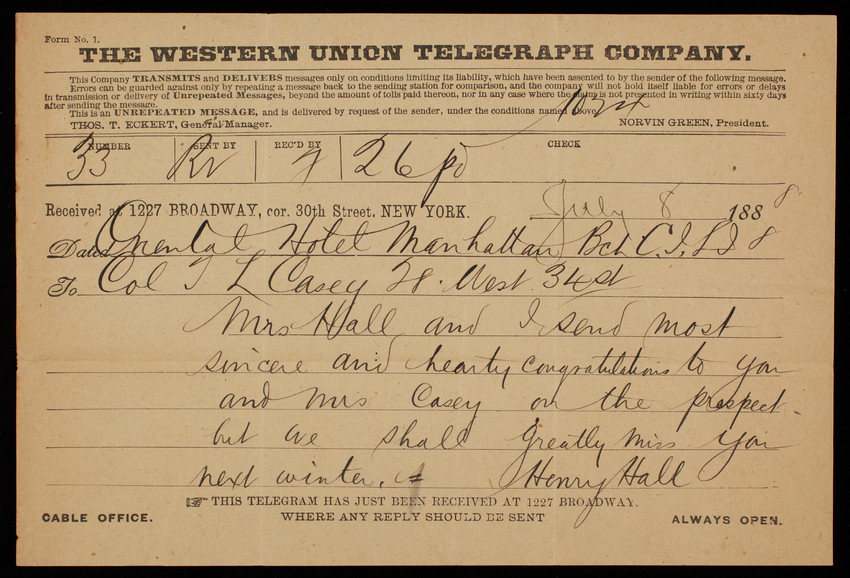 Form No. 1.
THE WESTERN UNION TELEGRAPH COMPANY.
This Company TRANSMITS and DELIVERS messages only on conditions limiting its liability, which have been assented to by the sender of the following message.
Errors can be guarded against only by repeating a message back to the sending station for comparison, and the company will not hold itself liable for errors or delays
in transmission or delivery of Unrepeated Messages, beyond the amount of tolls paid thereon, nor in any case where the claim is not presented in writing within sixty days
after sending the message.
This is an UNREPEATED MESSAGE, and is delivered by request of the sender, under the conditions named above.
THOS. T. ECKERT, General Manager. NORVIN GREEN, President.
NUMBER SENT BY REC'D BY CHECK
33 26 pd
Received at 1227 BROADWAY, cor. 30th Street, NEW YORK. July 8 1888
Dated Oriental Hotel Manhattan Bch C.I. L.I. 8
To Col T L Casey 28. West 34 st
Mrs Hall and I send most
sincere and hearty congratulations to you
and Mrs Casey on the prospect
but we shall greatly miss you
next winter. Henry Hall
THIS TELEGRAM HAS JUST BEEN RECEIVED AT 1227 BROADWAY.
CABLE OFFICE. WHERE ANY REPLY SHOULD BE SENT ALWAYS OPEN.